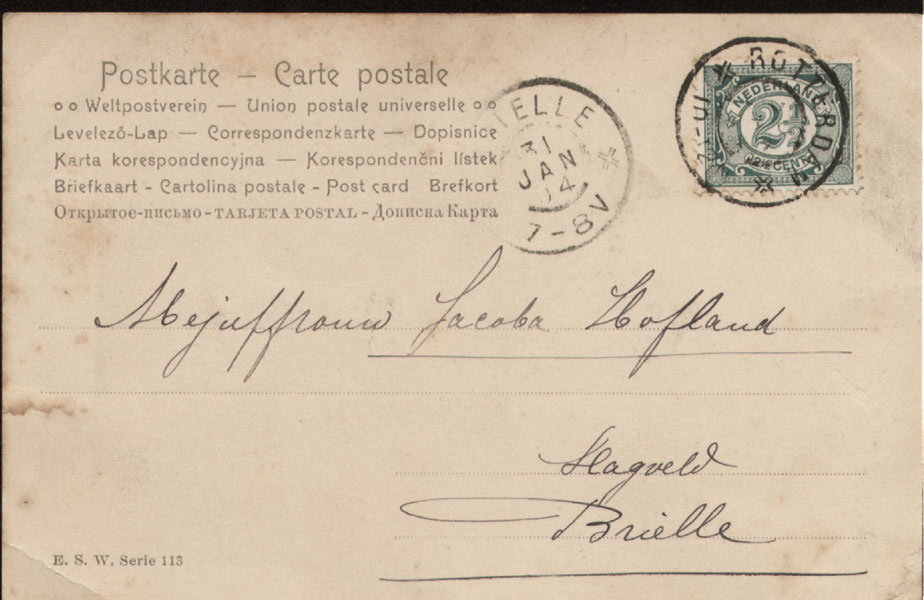 Postkarte — Carte postale
Weltpostverein — Union postale universelle
Levelező-Lap — Correspondenzkarte — Dopisnice
Karta korespondencyjna — Korespondenční lístek
Briefkaart - Cartolina postale - Post card Brefkort
Открытое-письмо - TARJETA POSTAL - Дописна Карта
IELLE
31
JAN
14
7-8V
ROTTERDAM
NEDERLAND
2½
CENT
Mejuffrouw Jacoba Hofland
Slagveld
Brielle
E. S. W. Serie 113